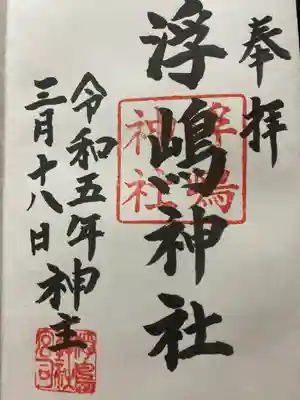 奉拝
浮嶋神社
浮嶋
神社
令和五年
三月十八日
神主
浮島
神社
宮司